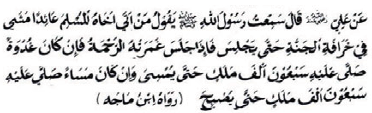 عَنْ عَلِيٍّ قَالَ سَمِعْتُ رَسُوْلَ اللهِ ﷺ يَقُوْلُ مَنْ اَتٰى اَخَاهُ الْمُسْلِمَ عَائِدًا مَشٰى
فِيْ خَرَافَةِ الْجَنَّةِ حَتّٰى يَجْلِسَ فَاِذَا جَلَسَ غَمَرَتْهُ الرَّحْمَةُ فَاِنْ كَانَ غُدْوَةً
صَلّٰى عَلَيْهِ سَبْعُوْنَ اَلْفَ مَلَكٍ حَتّٰى يُمْسِيَ وَاِنْ كَانَ مَسَاءً صَلّٰى عَلَيْهِ
سَبْعُوْنَ اَلْفَ مَلَكٍ حَتّٰى يُصْبِحَ ( رَوَاهُ ابْنُ مَاجَه )